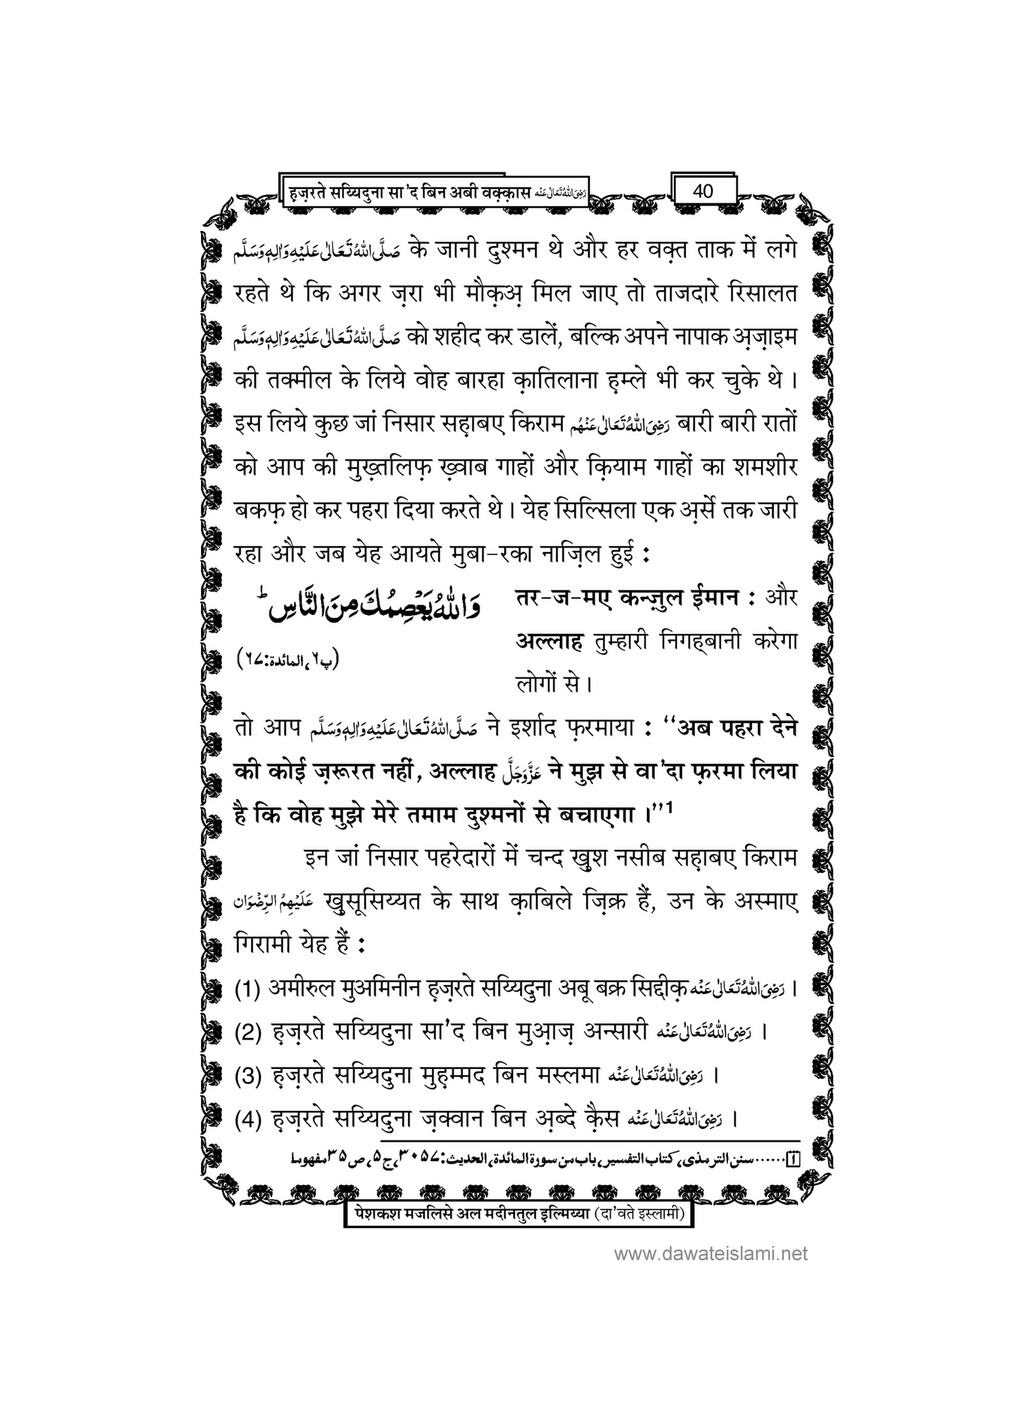 हज़रते सय्यिदुना सा'द बिन अबी वक़्क़ास رَضِیَ اللّٰہُ تَعَالٰی عَنْہ
40
صَلَّی اللّٰہُ تَعَالٰی عَلَیْہِ وَاٰلِہٖ وَسَلَّم के जानी दुश्मन थे और हर वक़्त ताक में लगे
रहते थे कि अगर ज़रा भी मौक़अ़ मिल जाए तो ताजदारे रिसालत
صَلَّی اللّٰہُ تَعَالٰی عَلَیْہِ وَاٰلِہٖ وَسَلَّم को शहीद कर डालें, बल्कि अपने नापाक अ़ज़ाइम
की तक्मील के लिये वोह बारहा क़ातिलाना ह़म्ले भी कर चुके थे ।
इस लिये कुछ जां निसार सह़ाबए किराम رَضِیَ اللّٰہُ تَعَالٰی عَنْہُم बारी बारी रातों
को आप की मुख़्तलिफ़ ख़्वाब गाहों और क़ियाम गाहों का शमशीर
बकफ़ हो कर पहरा दिया करते थे । येह सिल्सिला एक अ़र्से तक जारी
रहा और जब येह आयते मुबा-रका नाज़िल हुई :
وَاللّٰہُ یَعْصِمُكَ مِنَ النَّاسِ ؕ
(پ۶، المائدة:۶۷)
तर-ज-मए कन्ज़ुल ईमान : और
अल्लाह तुम्हारी निगह्बानी करेगा
लोगों से ।
तो आप صَلَّی اللّٰہُ تَعَالٰی عَلَیْہِ وَاٰلِہٖ وَسَلَّم ने इर्शाद फ़रमाया : ‘‘अब पहरा देने
की कोई ज़रूरत नहीं, अल्लाह عَزَّوَجَلَّ ने मुझ से वा'दा फ़रमा लिया
है कि वोह मुझे मेरे तमाम दुश्मनों से बचाएगा ।’’1
इन जां निसार पहरेदारों में चन्द ख़ुश नसीब सह़ाबए किराम
عَلَیْہِمُ الرِّضْوَان ख़ुसूसिय्यत के साथ क़ाबिले ज़िक्र हैं, उन के अस्माए
गिरामी येह हैं :
(1) अमीरुल मुअमिनीन ह़ज़रते सय्यिदुना अबू बक्र सिद्दीक़ رَضِیَ اللّٰہُ تَعَالٰی عَنْہ ।
(2) ह़ज़रते सय्यिदुना सा'द बिन मुआ़ज़ अन्सारी رَضِیَ اللّٰہُ تَعَالٰی عَنْہ ।
(3) ह़ज़रते सय्यिदुना मुह़म्मद बिन मस्लमा رَضِیَ اللّٰہُ تَعَالٰی عَنْہ ।
(4) ह़ज़रते सय्यिदुना ज़क्वान बिन अ़ब्दे क़ैस رَضِیَ اللّٰہُ تَعَالٰی عَنْہ ।
۱……سنن الترمذی، کتاب التفسیر، باب من سورة المائدة، الحدیث:۳۰۵۷، ج۵، ص۳۵ مفهوما
पेशकश मजलिसे अल मदीनतुल इल्मिय्या (दा'वते इस्लामी)
www.dawateislami.net